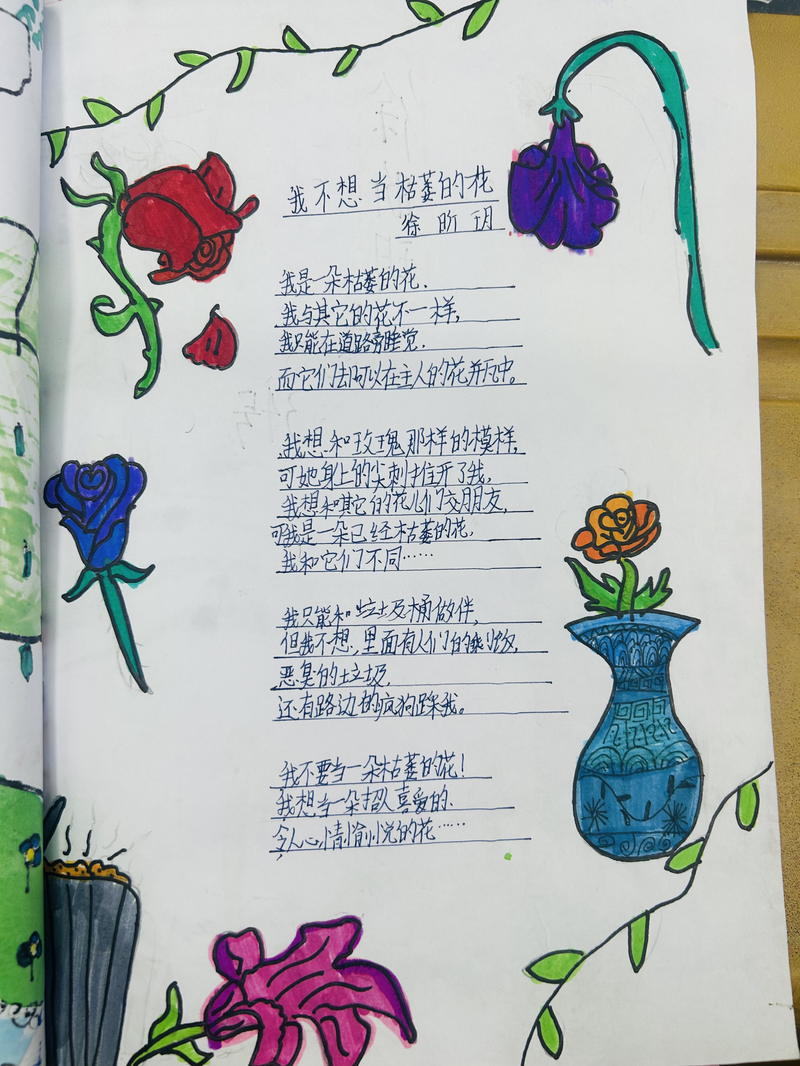 我不想当枯萎的花
徐昕玥
我是一朵枯萎的花.
我与其它的花不一样,
我只能在道路旁睡觉.
而它们却可以在主人的花瓶中。
我想和玫瑰那样的模样,
可她身上的尖刺推开了我,
我想和其它的花儿们交朋友,
可我是一朵已经枯萎的花,
我和它们不同……
我只能和垃圾桶做伴,
但我不想,里面有人们的剩饭,
恶臭的垃圾
还有路边的疯狗踩我。
我不要当一朵枯萎的花!
我想当一朵招人喜爱的.
令人心情愉悦的花……